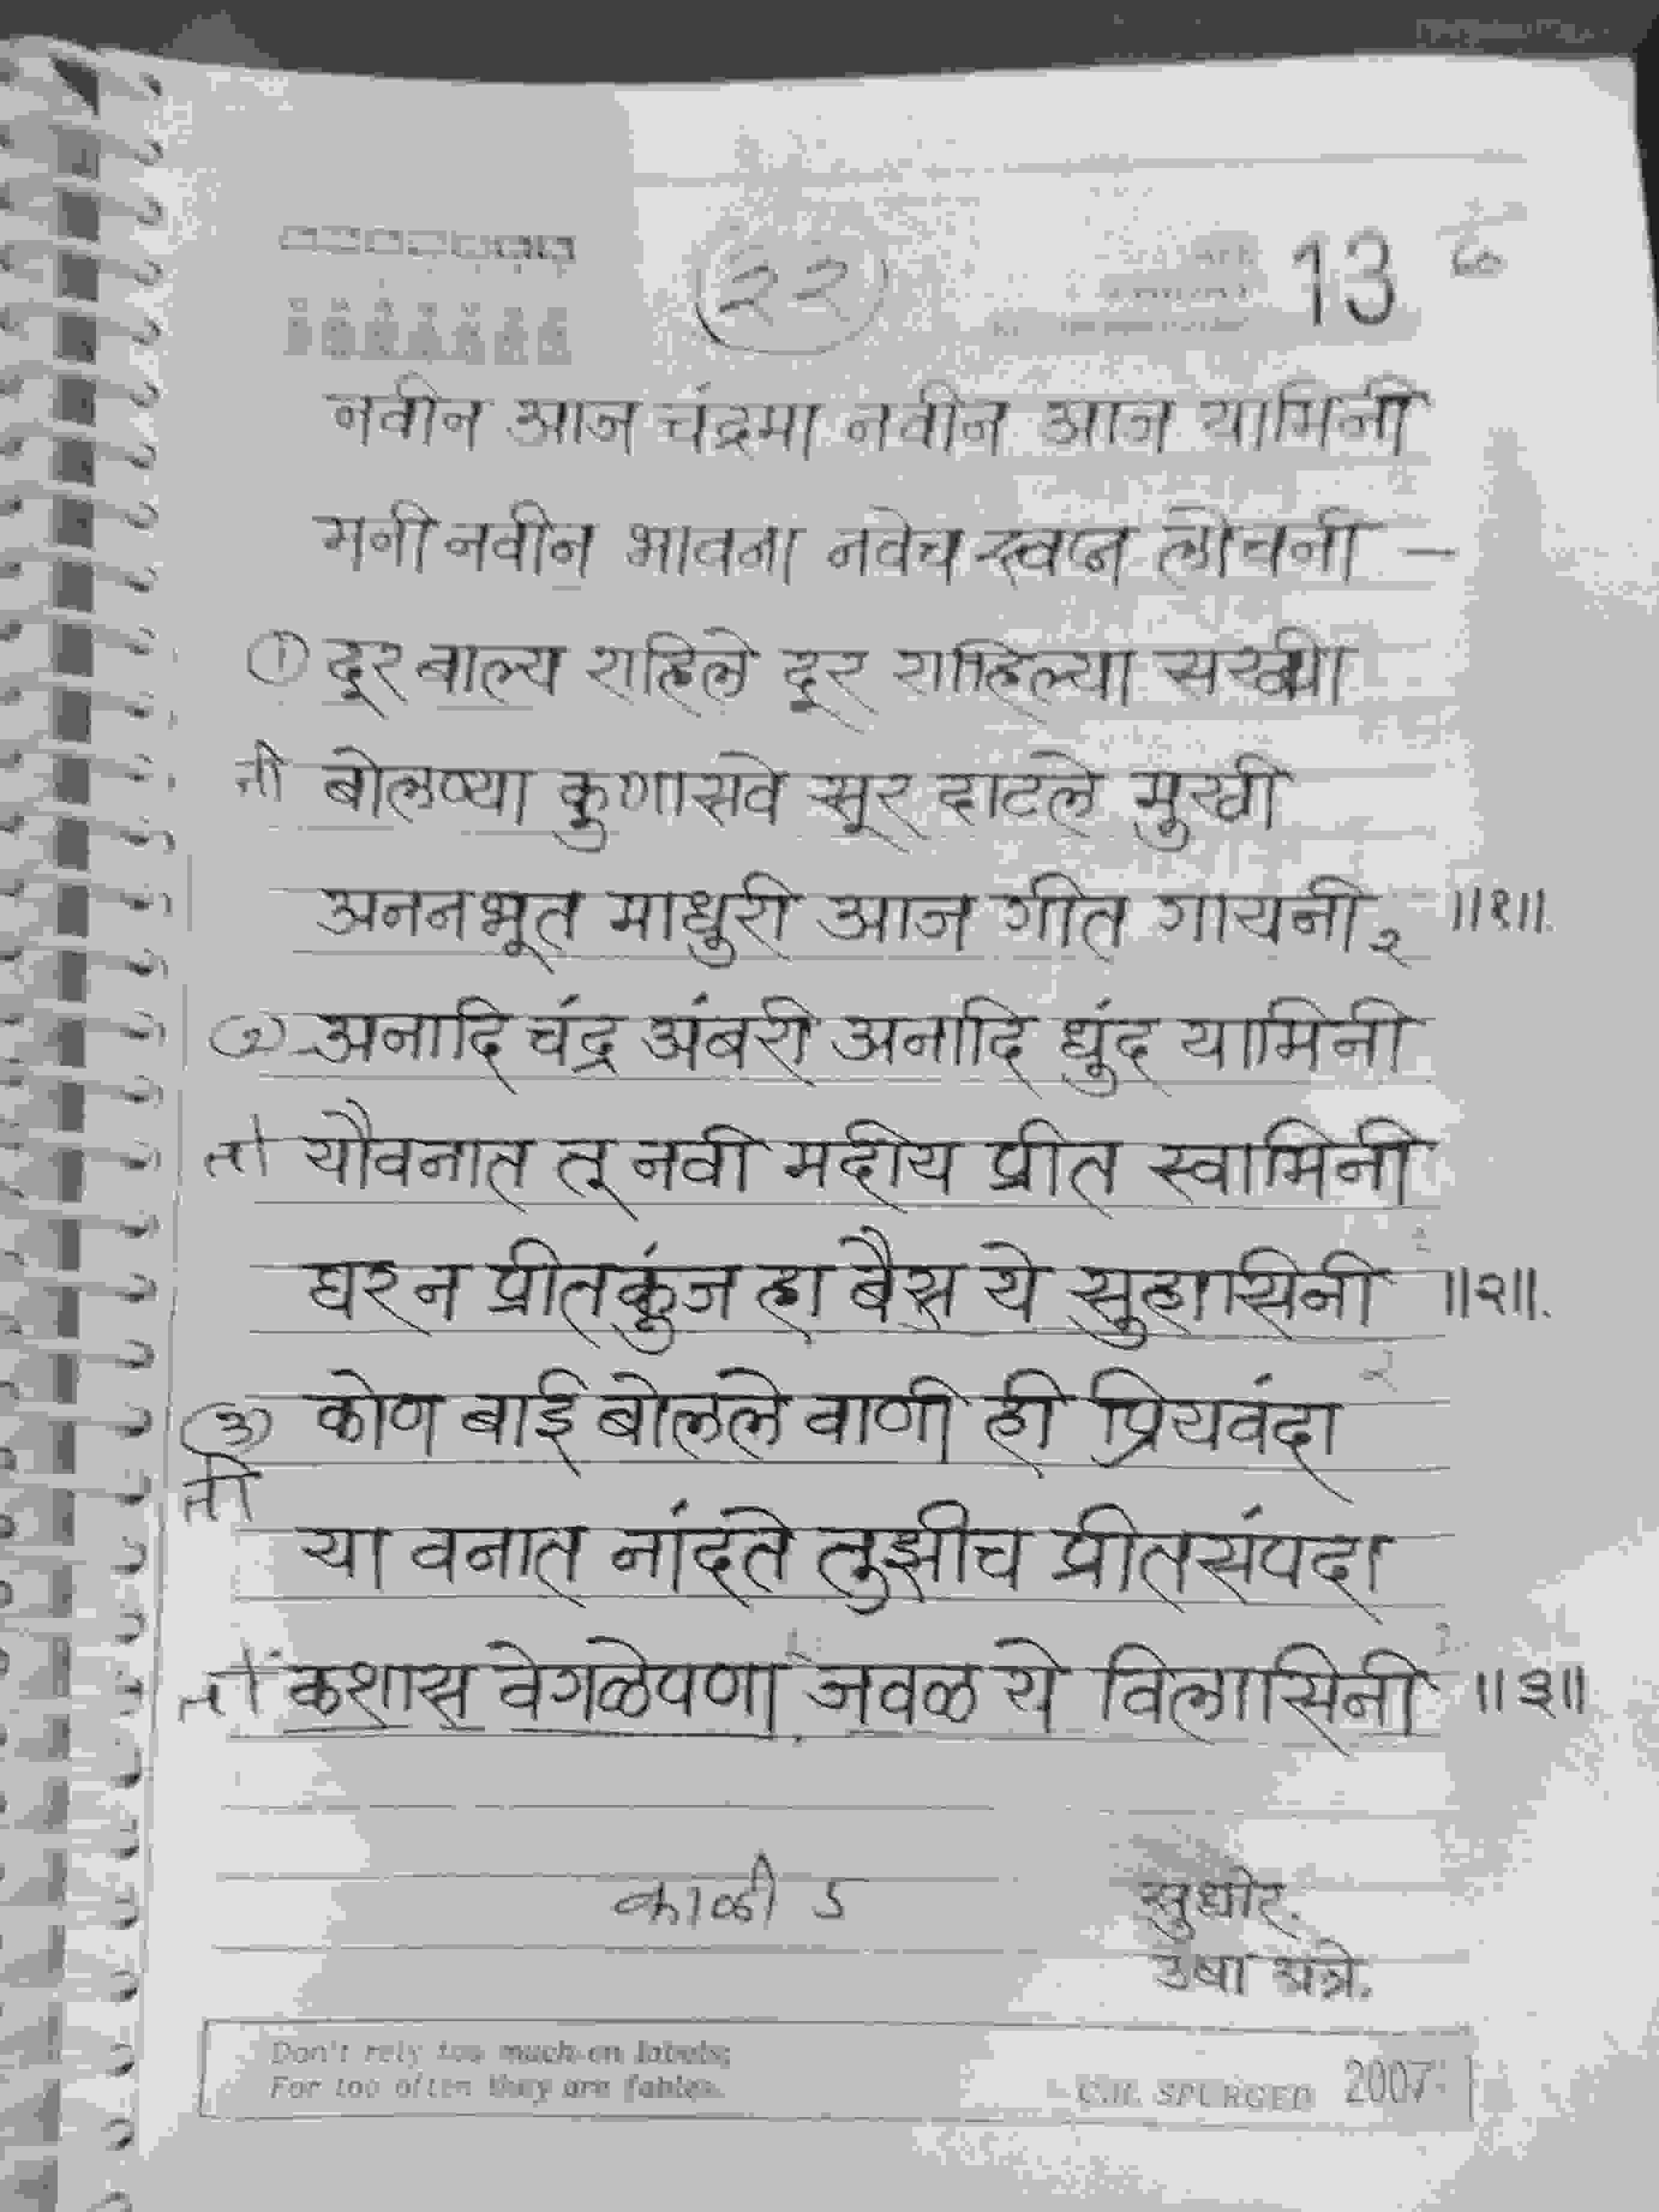 २२ 13
नवीन आज चंद्रमा नवीन आज यामिनी
मनी नवीन भावना नवेच स्वप्न लोचनी —
① दूर बाल्य राहिले दूर राहिल्या सख्या
ती बोलण्या कुणासवे सूर दाटले मुखी
अननभूत माधुरी आज गीत गायनी २ ॥१॥.
② अनादि चंद्र अंबरी अनादि धुंद यामिनी
तो यौवनात तू नवी मदीय प्रीत स्वामिनी
घर न प्रीतकुंज हा बैस ये सुहासिनी ॥२॥.
२
③ कोण बाई बोलले वाणी ही प्रियवंदा
ती
या वनात नांदते तुझीच प्रीतसंपदा
तो कशास वेगळेपणा जवळ ये विलासिनी ॥३॥
काळी ५ सुधीर.
उषा अत्रे.
Don't rely too much on labels;
For too often they are fables.
C.H. SPURGEO 2007